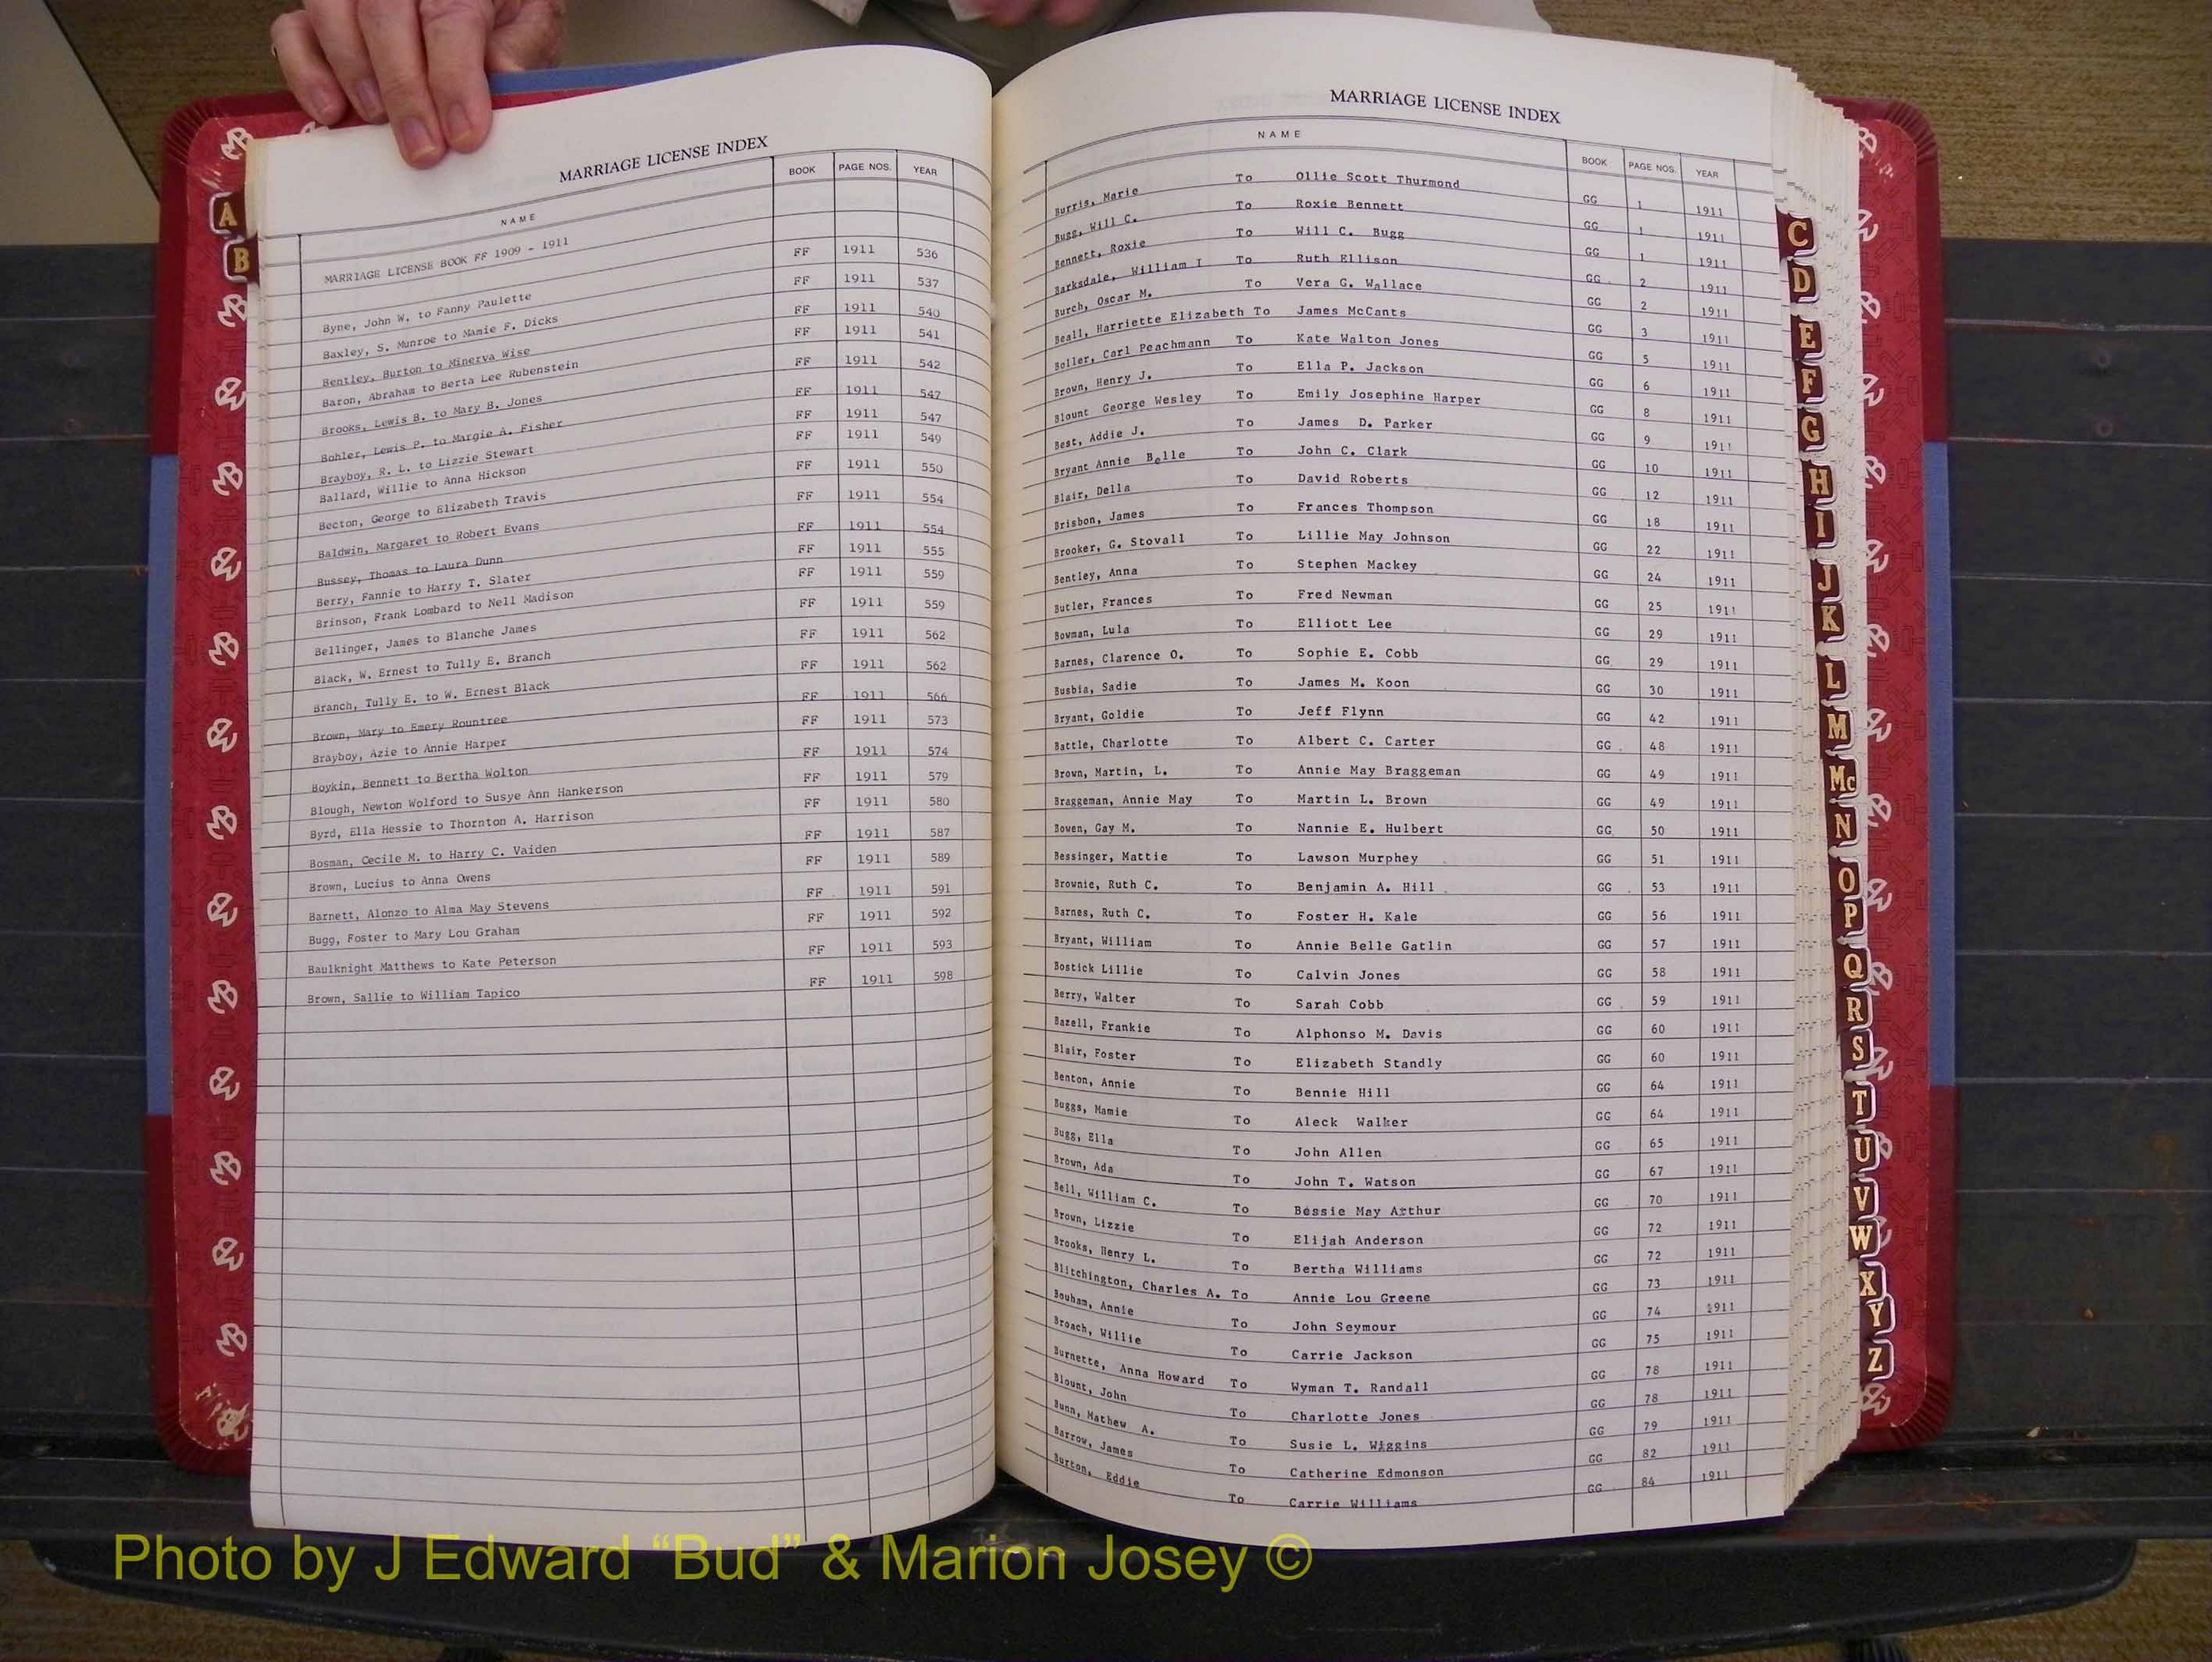 MARRIAGE LICENSE INDEX
NAME BOOK PAGE NOS. YEAR
MARRIAGE LICENSE BOOK FF 1909 - 1911
Byne, John W. to Fanny Paulette FF 1911 536
Baxley, S. Munroe to Mamie F. Dicks FF 1911 537
Bentley, Burton to Minerva Wise FF 1911 540
Baron, Abraham to Berta Lee Rubenstein FF 1911 541
Brooks, Lewis B. to Mary B. Jones FF 1911 542
Bohler, Lewis P. to Margie A. Fisher FF 1911 547
Brayboy, R. L. to Lizzie Stewart FF 1911 547
Ballard, Willie to Anna Hickson FF 1911 549
Becton, George to Elizabeth Travis FF 1911 550
Baldwin, Margaret to Robert Evans FF 1911 554
Bussey, Thomas to Laura Dunn FF 1911 554
Berry, Fannie to Harry T. Slater FF 1911 555
Brinson, Frank Lombard to Nell Madison FF 1911 559
Bellinger, James to Blanche James FF 1911 559
Black, W. Ernest to Tully E. Branch FF 1911 562
Branch, Tully E. to W. Ernest Black FF 1911 562
Brown, Mary to Emery Rountree FF 1911 566
Brayboy, Azie to Annie Harper FF 1911 573
Boykin, Bennett to Bertha Wolton FF 1911 574
Blough, Newton Wolford to Susye Ann Hankerson FF 1911 579
Byrd, Ella Hessie to Thornton A. Harrison FF 1911 580
Bosman, Cecile M. to Harry C. Vaiden FF 1911 587
Brown, Lucius to Anna Owens FF 1911 589
Barnett, Alonzo to Alma May Stevens FF 1911 591
Bugg, Foster to Mary Lou Graham FF 1911 592
Baulknight Matthews to Kate Peterson FF 1911 593
Brown, Sallie to William Tapico FF 1911 598
MARRIAGE LICENSE INDEX
NAME BOOK PAGE NOS. YEAR
Burris, Marie To Ollie Scott Thurmond GG 1 1911
Bugg, Will C. To Roxie Bennett GG 1 1911
Bennett, Roxie To Will C. Bugg GG 1 1911
Barksdale, William I To Ruth Ellison GG 2 1911
Burch, Oscar M. To Vera G. Wallace GG 2 1911
Beall, Harriette Elizabeth To James McCants GG 3 1911
Boller, Carl Peachmann To Kate Walton Jones GG 5 1911
Brown, Henry J. To Ella P. Jackson GG 6 1911
Blount George Wesley To Emily Josephine Harper GG 8 1911
Best, Addie J. To James D. Parker GG 9 1911
Bryant Annie Belle To John C. Clark GG 10 1911
Blair, Della To David Roberts GG 12 1911
Brisbon, James To Frances Thompson GG 18 1911
Brooker, G. Stovall To Lillie May Johnson GG 22 1911
Bentley, Anna To Stephen Mackey GG 24 1911
Butler, Frances To Fred Newman GG 25 1911
Bowman, Lula To Elliott Lee GG 29 1911
Barnes, Clarence O. To Sophie E. Cobb GG 29 1911
Busbia, Sadie To James M. Koon GG 30 1911
Bryant, Goldie To Jeff Flynn GG 42 1911
Battle, Charlotte To Albert C. Carter GG 48 1911
Brown, Martin, L. To Annie May Braggeman GG 49 1911
Braggeman, Annie May To Martin L. Brown GG 49 1911
Bowen, Gay M. To Nannie E. Hulbert GG 50 1911
Bessinger, Mattie To Lawson Murphey GG 51 1911
Brownie, Ruth C. To Benjamin A. Hill GG 53 1911
Barnes, Ruth C. To Foster H. Kale GG 56 1911
Bryant, William To Annie Belle Gatlin GG 57 1911
Bostick Lillie To Calvin Jones GG 58 1911
Berry, Walter To Sarah Cobb GG 59 1911
Bazell, Frankie To Alphonso M. Davis GG 60 1911
Blair, Foster To Elizabeth Standly GG 60 1911
Benton, Annie To Bennie Hill GG 64 1911
Buggs, Mamie To Aleck Walker GG 64 1911
Bugg, Ella To John Allen GG 65 1911
Brown, Ada To John T. Watson GG 67 1911
Bell, William C. To Bessie May Arthur GG 70 1911
Brown, Lizzie To Elijah Anderson GG 72 1911
Brooks, Henry L. To Bertha Williams GG 72 1911
Blitchington, Charles A. To Annie Lou Greene GG 73 1911
Bouham, Annie To John Seymour GG 74 1911
Broach, Willie To Carrie Jackson GG 75 1911
Burnette, Anna Howard To Wyman T. Randall GG 78 1911
Blount, John To Charlotte Jones GG 78 1911
Bunn, Mathew A. To Susie L. Wiggins GG 79 1911
Barrow, James To Catherine Edmonson GG 82 1911
Burton, Eddie To Carrie Williams GG 84 1911
A
B
C
D
E
F
G
H
I
J
K
L
M
Mc
N
O
P
Q
R
S
T
U
V
W
X
Y
Z
Photo by J Edward “Bud” & Marion Josey ©